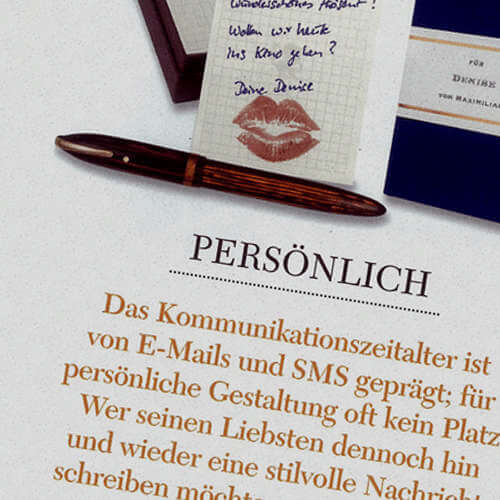 wunderschönes Präsent!
Wollen wir heute
ins Kino gehen?
Deine Denise
FÜR
DENISE
VON MAXIMILIAN
PERSÖNLICH
Das Kommunikationszeitalter ist
von E-Mails und SMS geprägt; für
persönliche Gestaltung oft kein Platz
Wer seinen Liebsten dennoch hin
und wieder eine stilvolle Nachricht
schreiben möchte